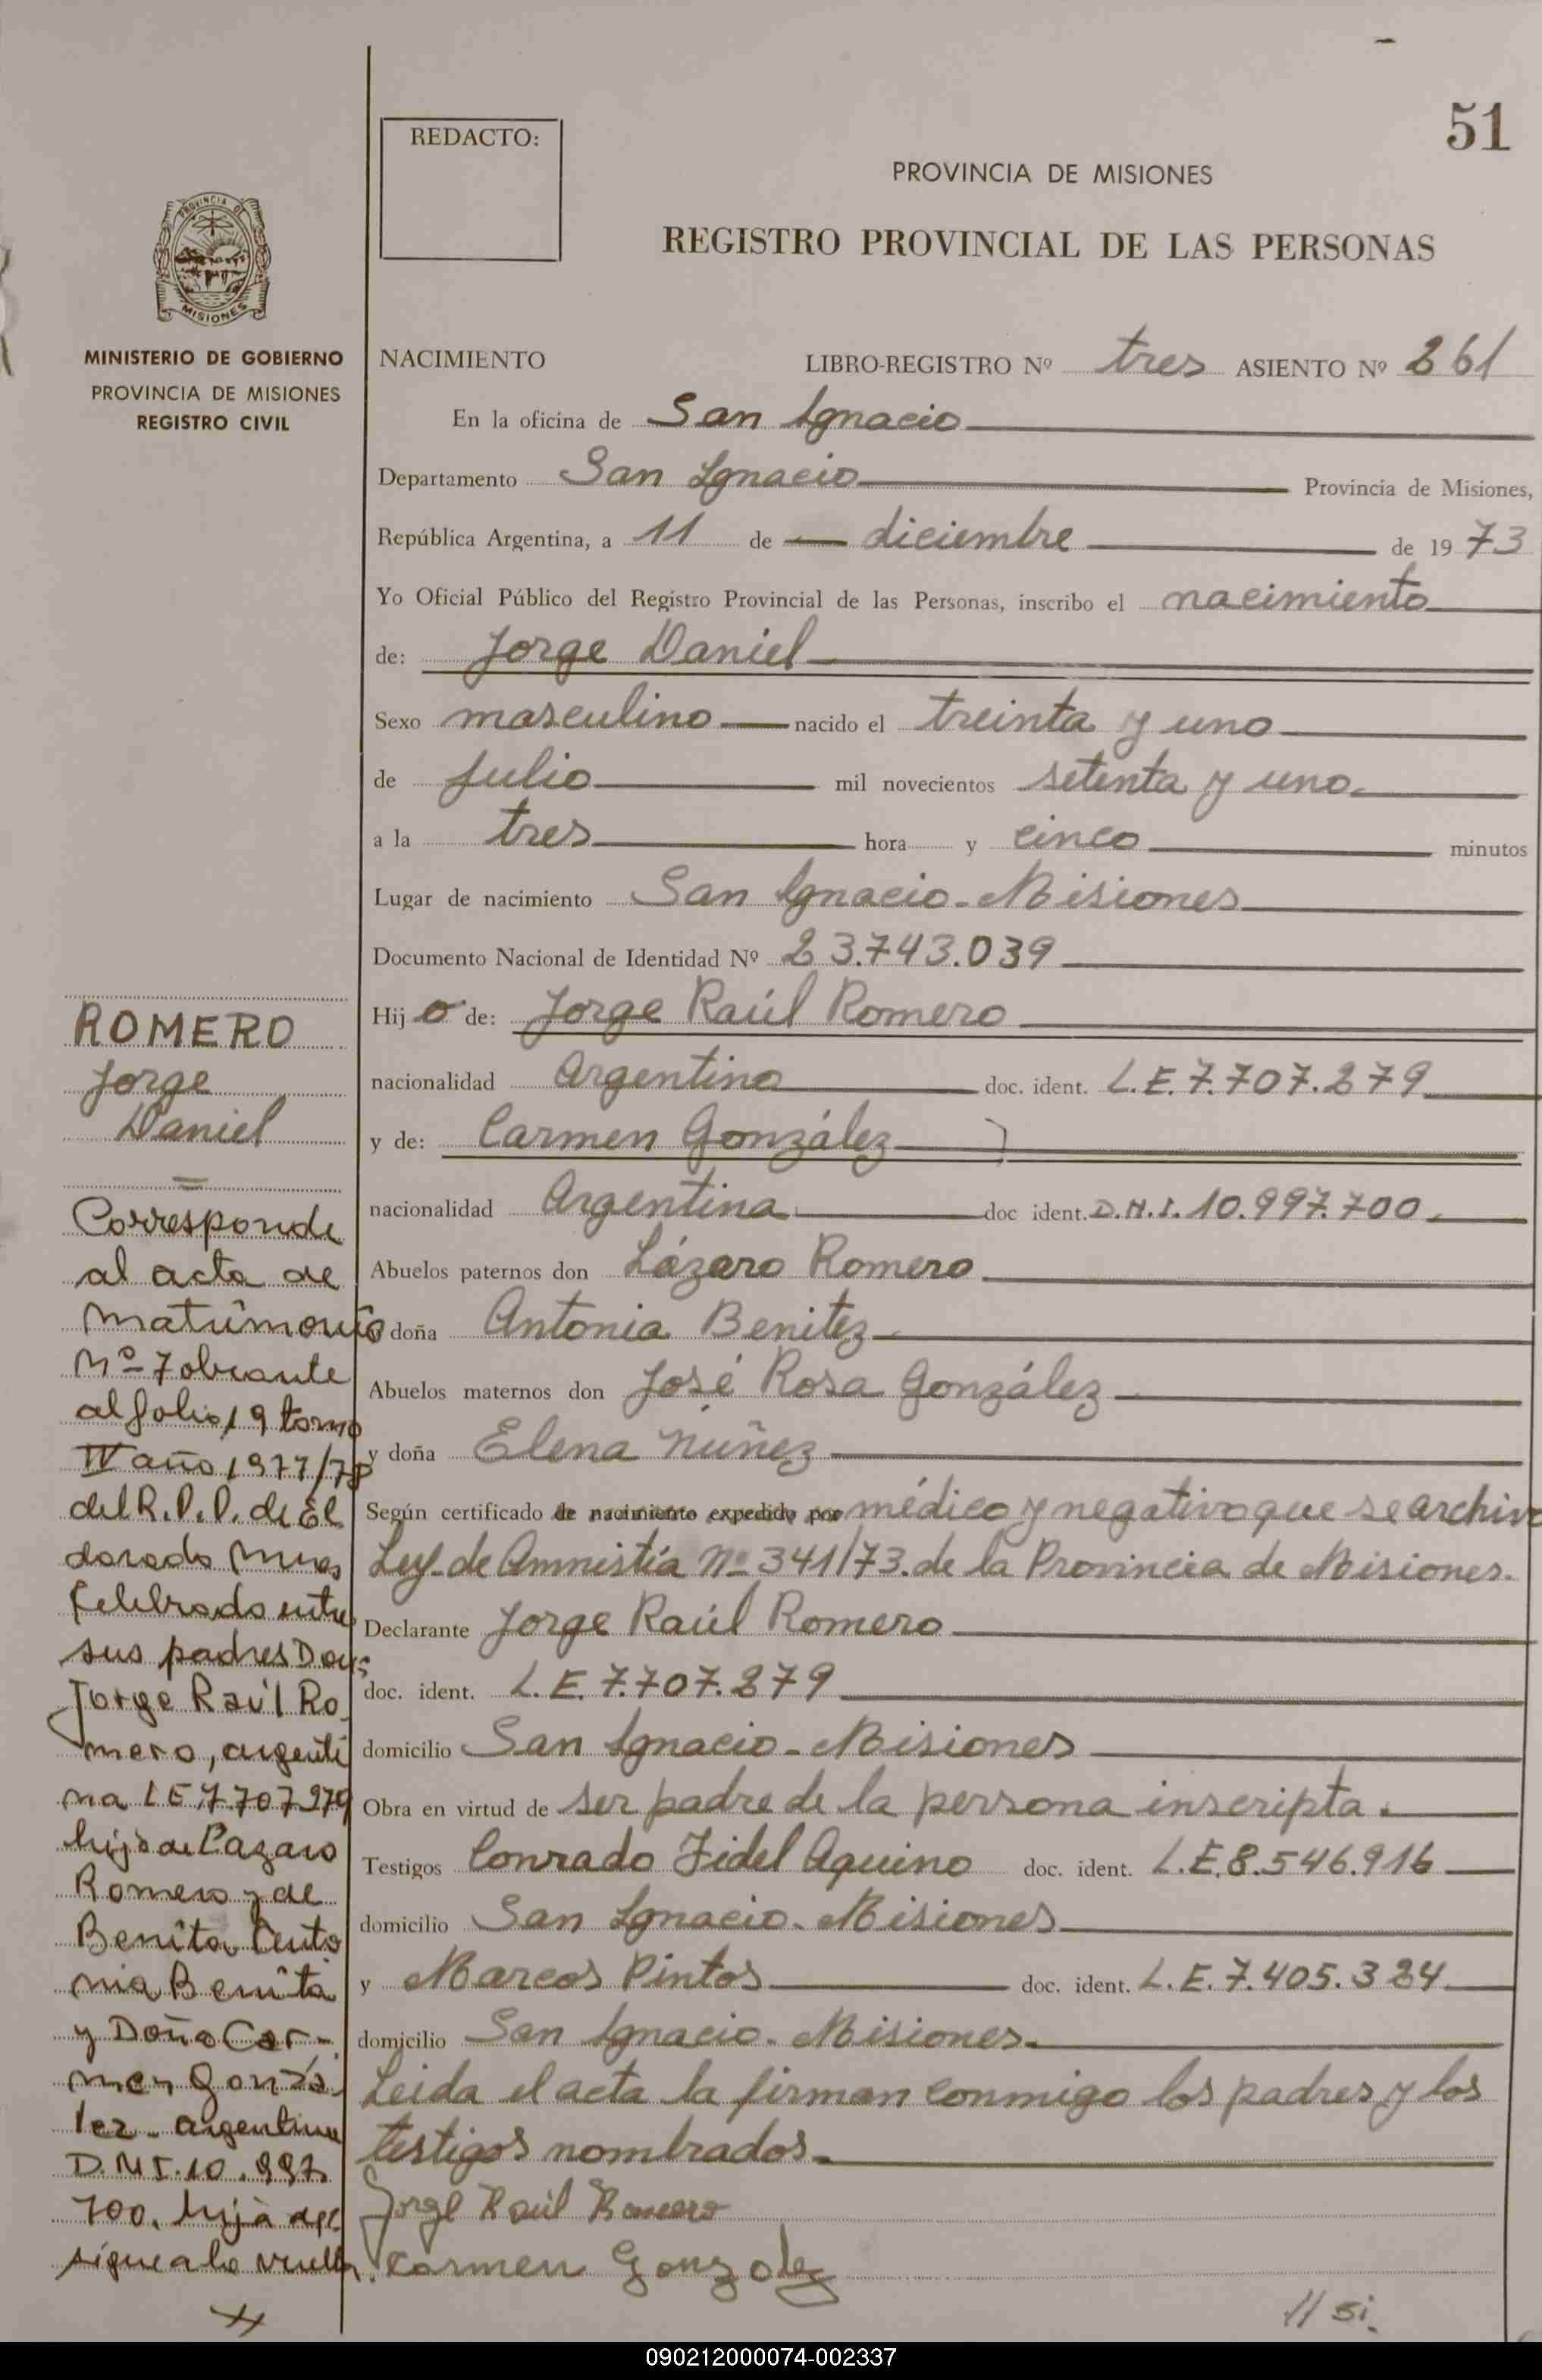 51
REDACTO:
PROVINCIA DE MISIONES
REGISTRO PROVINCIAL DE LAS PERSONAS
PROVINCIA DE
MISIONES
MINISTERIO DE GOBIERNO
PROVINCIA DE MISIONES
REGISTRO CIVIL
NACIMIENTO LIBRO-REGISTRO Nº tres ASIENTO Nº 261
En la oficina de San Ignacio
Departamento San Ignacio Provincia de Misiones,
República Argentina, a 11 de diciembre de 1973
Yo Oficial Público del Registro Provincial de las Personas, inscribo el nacimiento
de: Jorge Daniel
Sexo masculino nacido el treinta y uno
de julio mil novecientos setenta y uno.
a la tres hora y cinco minutos
Lugar de nacimiento San Ignacio - Misiones
Documento Nacional de Identidad Nº 23.743.039
Hijo de: Jorge Raúl Romero
nacionalidad Argentina doc. ident. L.E. 7.707.279
y de: Carmen González
nacionalidad Argentina doc ident. D.N.I. 10.997.700.
Abuelos paternos don Lázaro Romero
doña Antonia Benitez
Abuelos maternos don José Rosa González
y doña Elena Núñez
Según certificado de nacimiento expedido por médico y negativo que se archiva
Ley de Amnistía Nº 341/73. de la Provincia de Misiones.
Declarante Jorge Raúl Romero
doc. ident. L.E. 7.707.279
domicilio San Ignacio - Misiones
Obra en virtud de ser padre de la persona inscripta.
Testigos Conrado Fidel Aquino doc. ident. L.E. 8.546.916
domicilio San Ignacio - Misiones
y Marcos Pintos doc. ident. L.E. 7.405.324
domicilio San Ignacio - Misiones.
Leida el acta la firman conmigo los padres y los
testigos nombrados.
Jorge Raúl Romero
Carmen Gonzalez
// si.
ROMERO
Jorge
Daniel
=
Corresponde
al acta de
matrimonio
Nº 7 obrante
al folio 19 tomo
IV año 1977/78
del R.P.P. de El
dorado Mnes
Celebrado entre
sus padres Don
Jorge Raúl Ro
mero, argenti
na LE 7.707.279
hijo de Lazaro
Romero y de
Benita Anto
nia Benita
y Doña Car-
men Gonzá
lez - argentina
D.N.I. 10.997.
700. hija de
sigue a la vuelta.
090212000074-002337